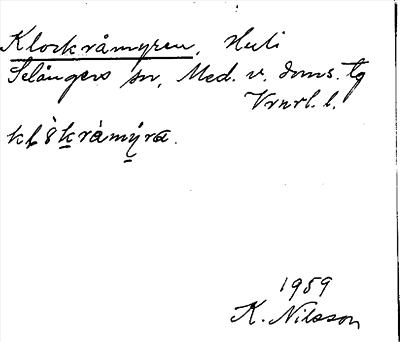 Klockråmyren, Huli
Selångers sn, Med. v. doms. tg
Vrurl. l.
klòkråmýra.
1959
K. Nilsson